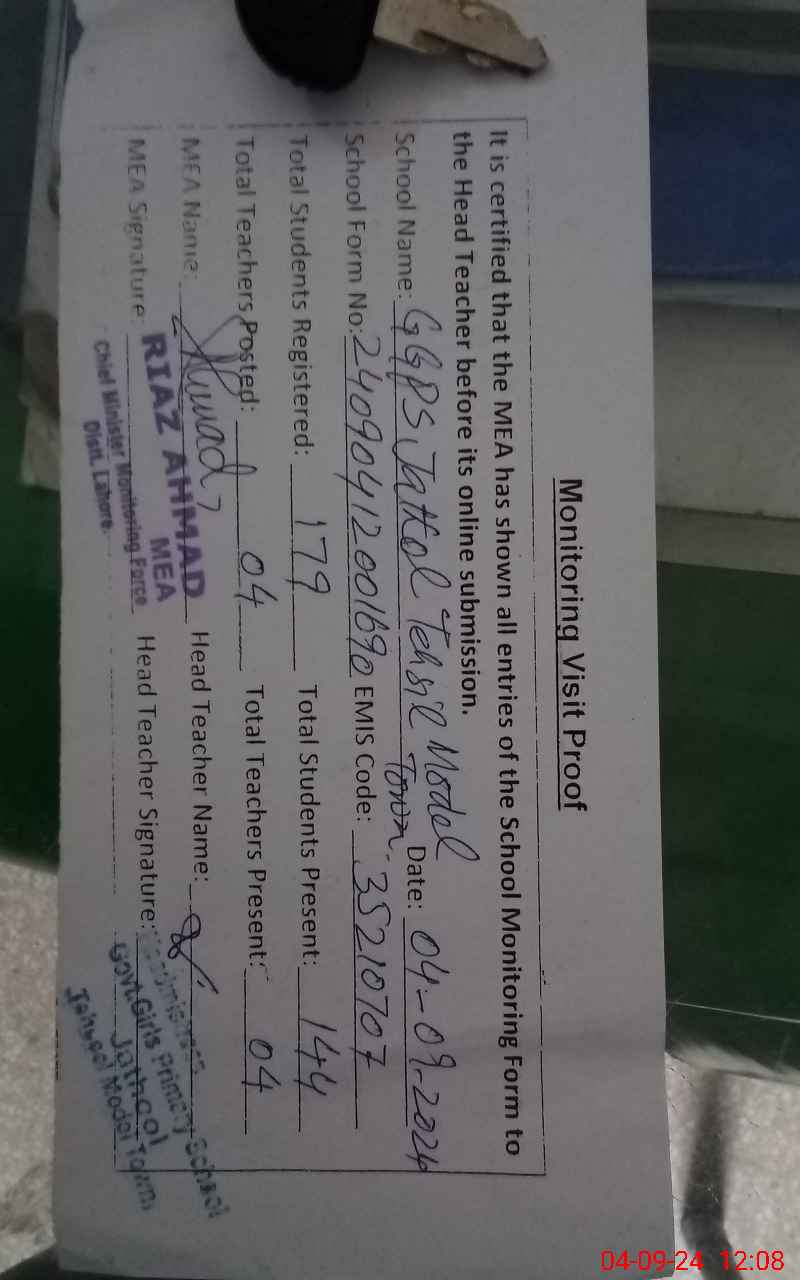 Monitoring Visit Proof
It is certified that the MEA has shown all entries of the School Monitoring Form to
the Head Teacher before its online submission.
School Name: GGPS Jathol Tehsil Model Town. Date: 04-09-2024
School Form No: 24090412001690 EMIS Code: 35210707
Total Students Registered: 179 Total Students Present: 144
Total Teachers Posted: 04 Total Teachers Present: 04
MEA Name: Head Teacher Name:
MEA Signature: Head Teacher Signature:
RIAZ AHMAD
MEA
Chief Minister Monitoring Force
Distt. Lahore.
Govt. Girls Primary School
Jathool
Tehseel Model Town
04-09-24 12:08